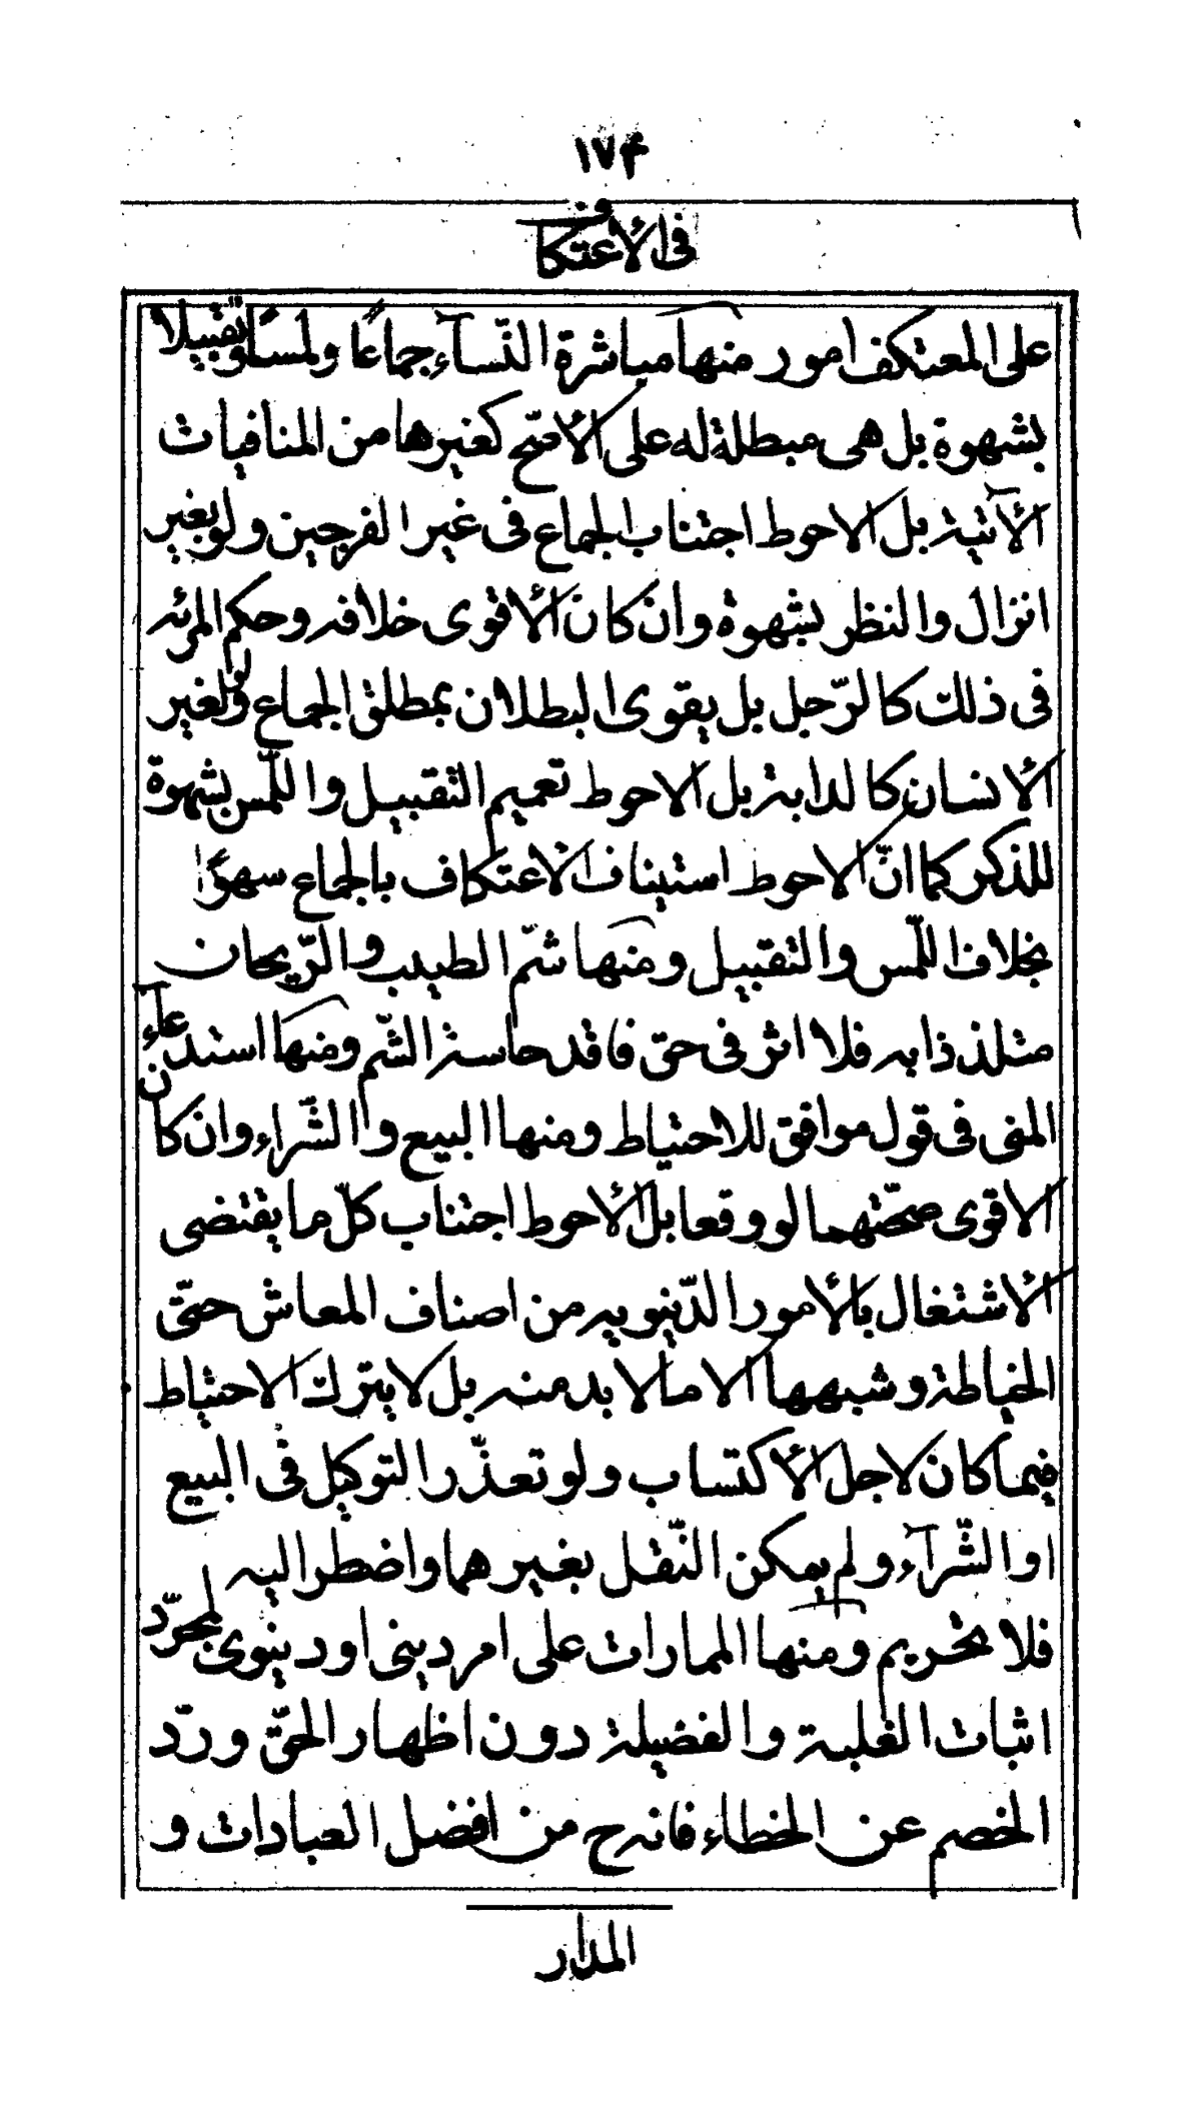 ١٧۴
فى الأعتكاف
على المعتكف امور منها مباشرة النّسآء جماعًا ولمسًا وتقبيلا
بشهوة بل هى مبطلة له على الأصّح كغيرها من المنافيات
الآتية بل الاحوط اجتناب الجماع فى غير الفرجين ولو بغير
انزال والنظر بشهوة وان كان الأقوى خلافه وحكم المرئه
فى ذلك كالرّجل بل يقوى البطلان بمطلق الجماع ولو لغير
الأنسان كالدابة بل الاحوط تعميم التقبيل واللّمس بشهوة
للذكر كما انّ الاحوط استيناف الأعتكاف بالجماع سهوًا
بخلاف اللّمس والتقبيل ومنها شمّ الطيب والرّيحان
متلذذا به فلا اثر فى حق فاقد حاسة الشّم ومنها استدعاء
المنى فى قول موافق للاحتياط ومنها البيع والشّراء وان كان
الاقوى صحّتهما لو وقعا بل الأحوط اجتناب كلّ ما يقتضى
الأشتغال بالأمور الدّينويه من اصناف المعاش حتّى
الخياطة وشبهها الا ما لا بد منه بل لا يترك الاحتياط
فيما كان لاجل الأكتساب ولو تعذّر التوكيل فى البيع
او الشّرآء ولم يمكن النّقل بغيرهما واضطر اليه
فلا تحريم ومنها الممارات على امر دينى او دينوى لمجرّد
اثبات الغلبة والفضيلة دون اظهار الحقّ وردّ
الخصم عن الخطاء فانه ح من افضل العبادات و
المدار